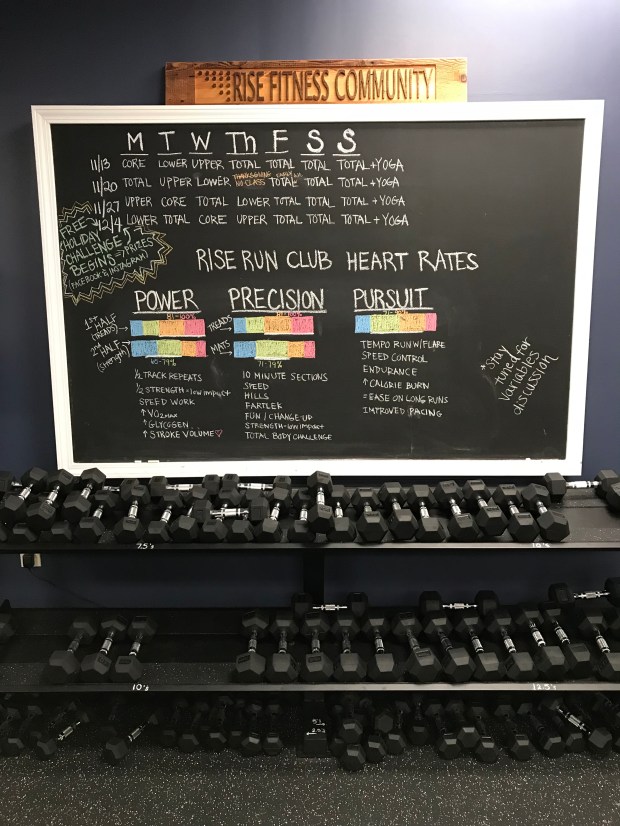 RISE FITNESS COMMUNITY
M T W Th F S S
11/13 CORE LOWER UPPER TOTAL TOTAL TOTAL TOTAL+YOGA
11/20 TOTAL UPPER LOWER THANKSGIVING NO CLASS TOTAL TOTAL TOTAL+YOGA
11/27 UPPER CORE TOTAL LOWER TOTAL TOTAL TOTAL+YOGA
12/4 LOWER TOTAL CORE UPPER TOTAL TOTAL TOTAL+YOGA
FREE
HOLIDAY
CHALLENGE
BEGINS → PRIZES
(FACEBOOK & INSTAGRAM)
RISE RUN CLUB HEART RATES
POWER
1ST HALF
(TREADS)
81-100%
2ND HALF
(strength)
65-79%
1/2 TRACK REPEATS
1/2 STRENGTH=low impact
SPEED WORK
↑ VO2MAX
↑ GLYCOGEN
↑ STROKE VOLUME ♡
PRECISION
TREADS
MATS
71-79%
10 MINUTE SECTIONS
SPEED
HILLS
FARTLEK
FUN / CHANGE-UP
STRENGTH=low impact
TOTAL BODY CHALLENGE
PURSUIT
TEMPO RUN W/FLARE
SPEED CONTROL
ENDURANCE
↑ CALORIE BURN
= EASE ON LONG RUNS
IMPROVED PACING
*Stay
tuned for
Variables
discussion
7.5's
10's
12.5's